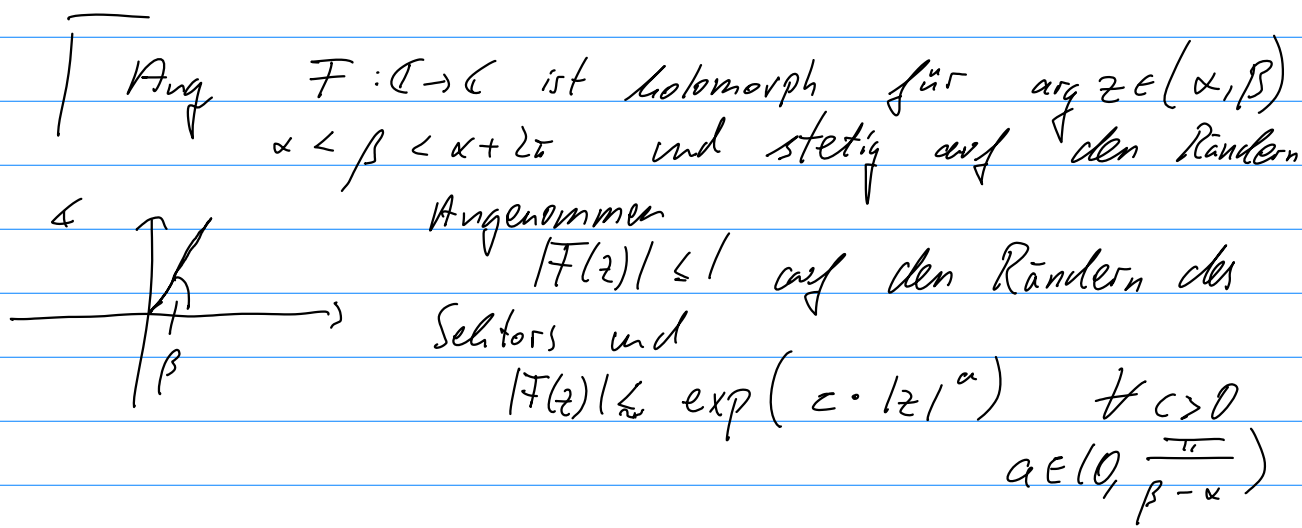 Ang F : ℂ → ℂ ist holomorph für arg z ∈ (α, β)
α < β < α + 2π und stetig auf den Rändern
Angenommen
|F(z)| ≤ 1 auf den Rändern des
Sektors und
β
|F(z)| ≲ exp( c · |z|^a ) ∀ c > 0
a ∈ (0, π/(β - α))